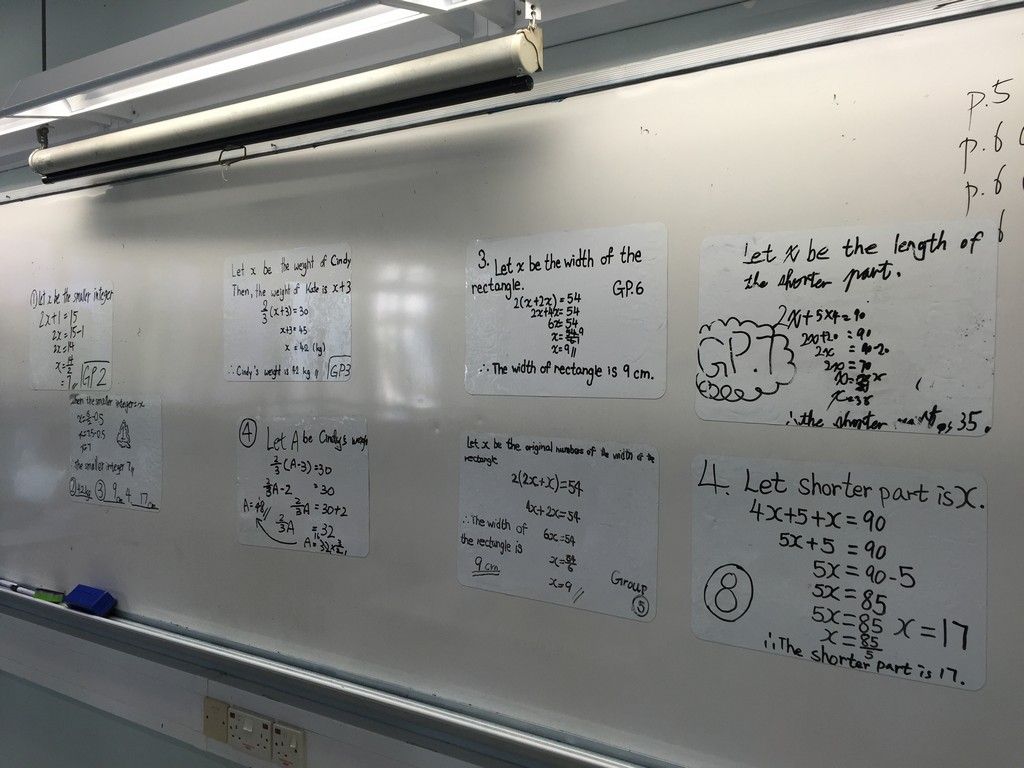 p.5
p.6
p.6
6
① Let x be the smaller integer
2x+1=15
2x=15-1
2x=14
x=14/2
=7
GP2
When the smaller integer=x
x=7.5-0.5
x=7
The smaller integer 7
② 42kg ③ 9cm 4. 17cm
Let x be the weight of Cindy
Then, the weight of Kate is x+3
2/3(x+3)=30
x+3=45
x=42 (kg)
∴ Cindy's weight is 42 kg
GP3
④ Let A be Cindy's weigh
2/3(A-3)=30
2/3A-2 =30
2/3A =30+2
A=48//
2/3A =32
3. Let x be the width of the
rectangle.
GP.6
2(x+2x)=54
2x+4x=54
6x=54
x=9//
∴ The width of rectangle is 9 cm.
Let x be the original numbers of the width of the
rectangle
2(2x+x)=54
4x+2x=54
∴ The width of
6x=54
the rectangle is
x=54/6
9cm
x=9//
Group
⑤
Let x be the length of
the shorter part.
2x+5×4=90
2x+20=90
2x =90-20
2x=70
x=35
GP.7
∴ the shorter 35.
4. Let shorter part is x.
4x+5+x=90
5x+5=90
5x=90-5
5x=85
5x=85
x=85/5
x=17
⑧
∴ The shorter part is 17.